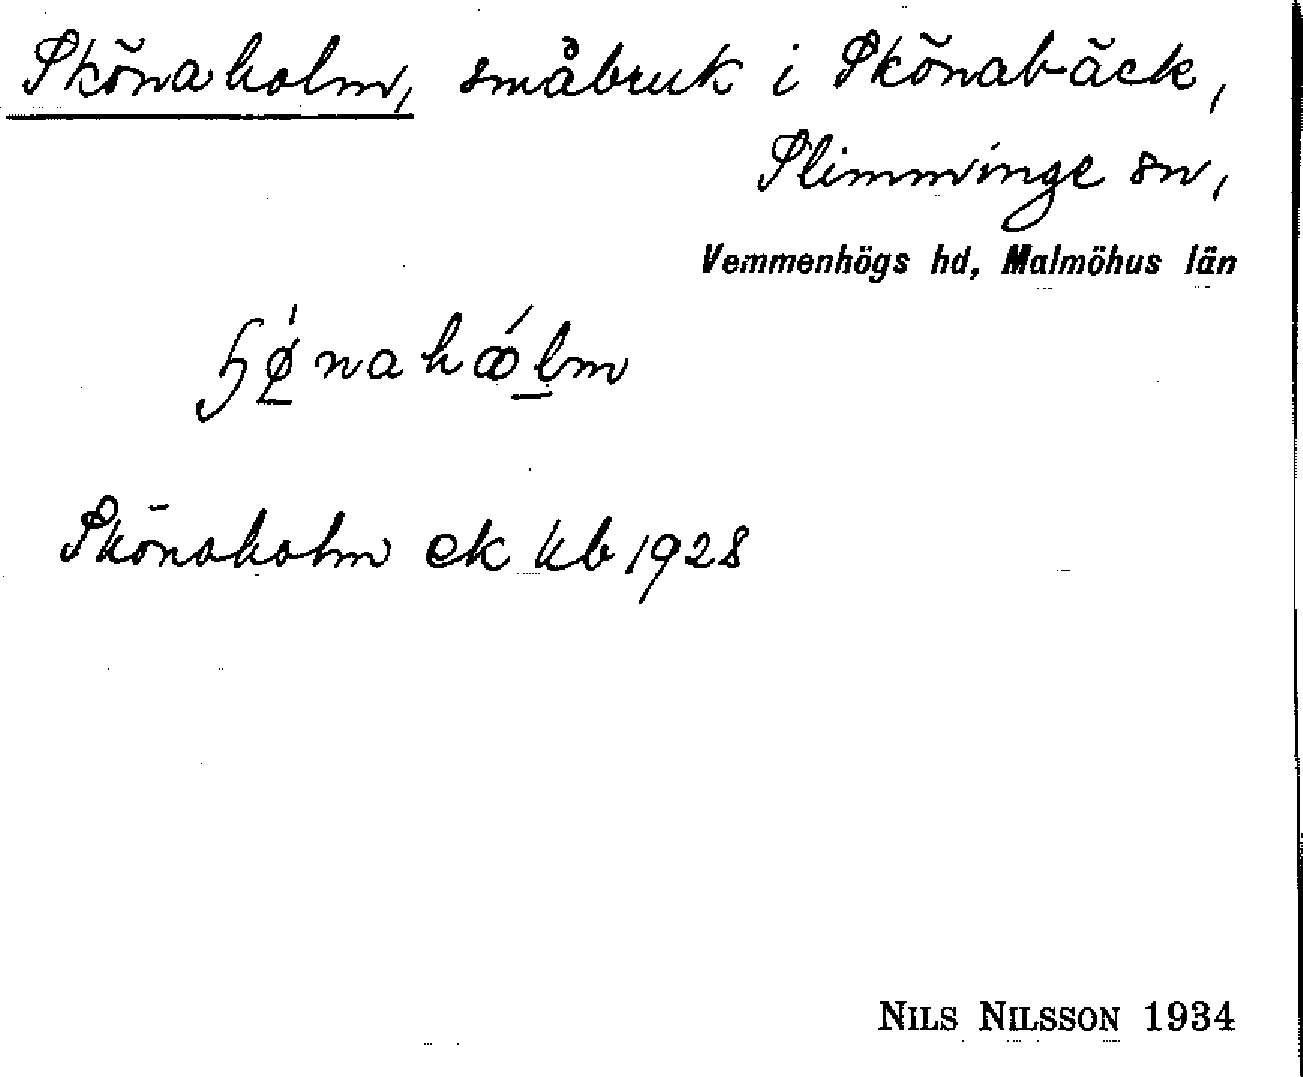 Skönaholm, småbruk i Skönabäck,
Slimminge sn,
Vemmenhögs hd, Malmöhus län
Skönaholm ek kb 1928
NILS NILSSON 1934